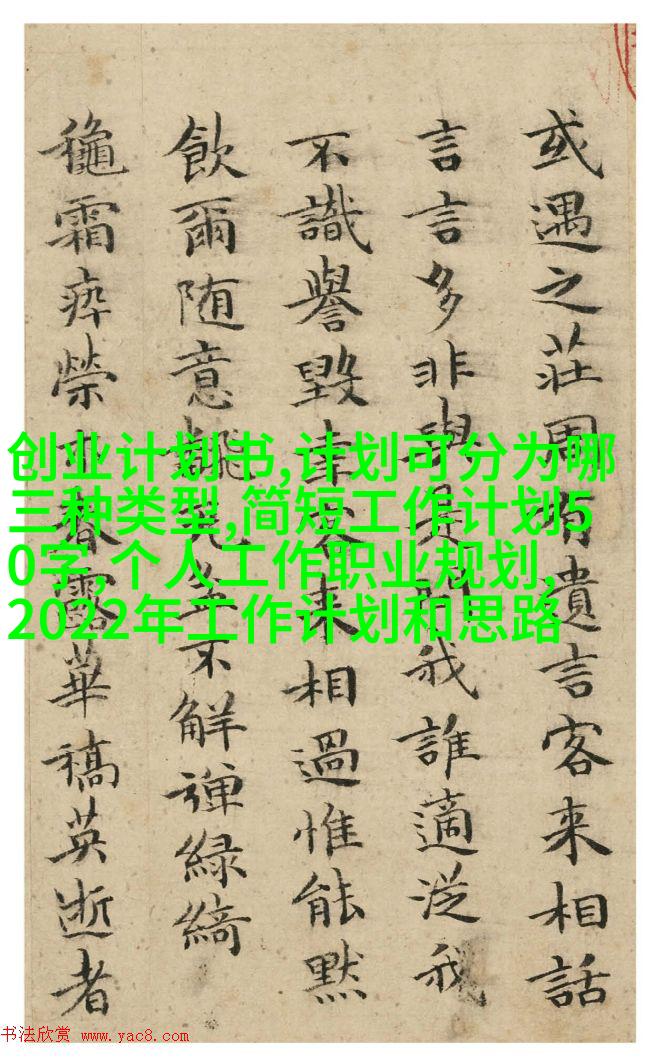 或遇之莊周有遺言客来相話
言言多非與我誰適從我
不識譽毀客来相過惟能默
飲爾随意兀坐不解弹緑綺
龝霜瘁榮木春露華稿英逝者
创业计划书,计划可分为哪
三种类型,简短工作计划5
0字,个人工作职业规划,
2022年工作计划和思路
书法欣赏 www.yac8.com